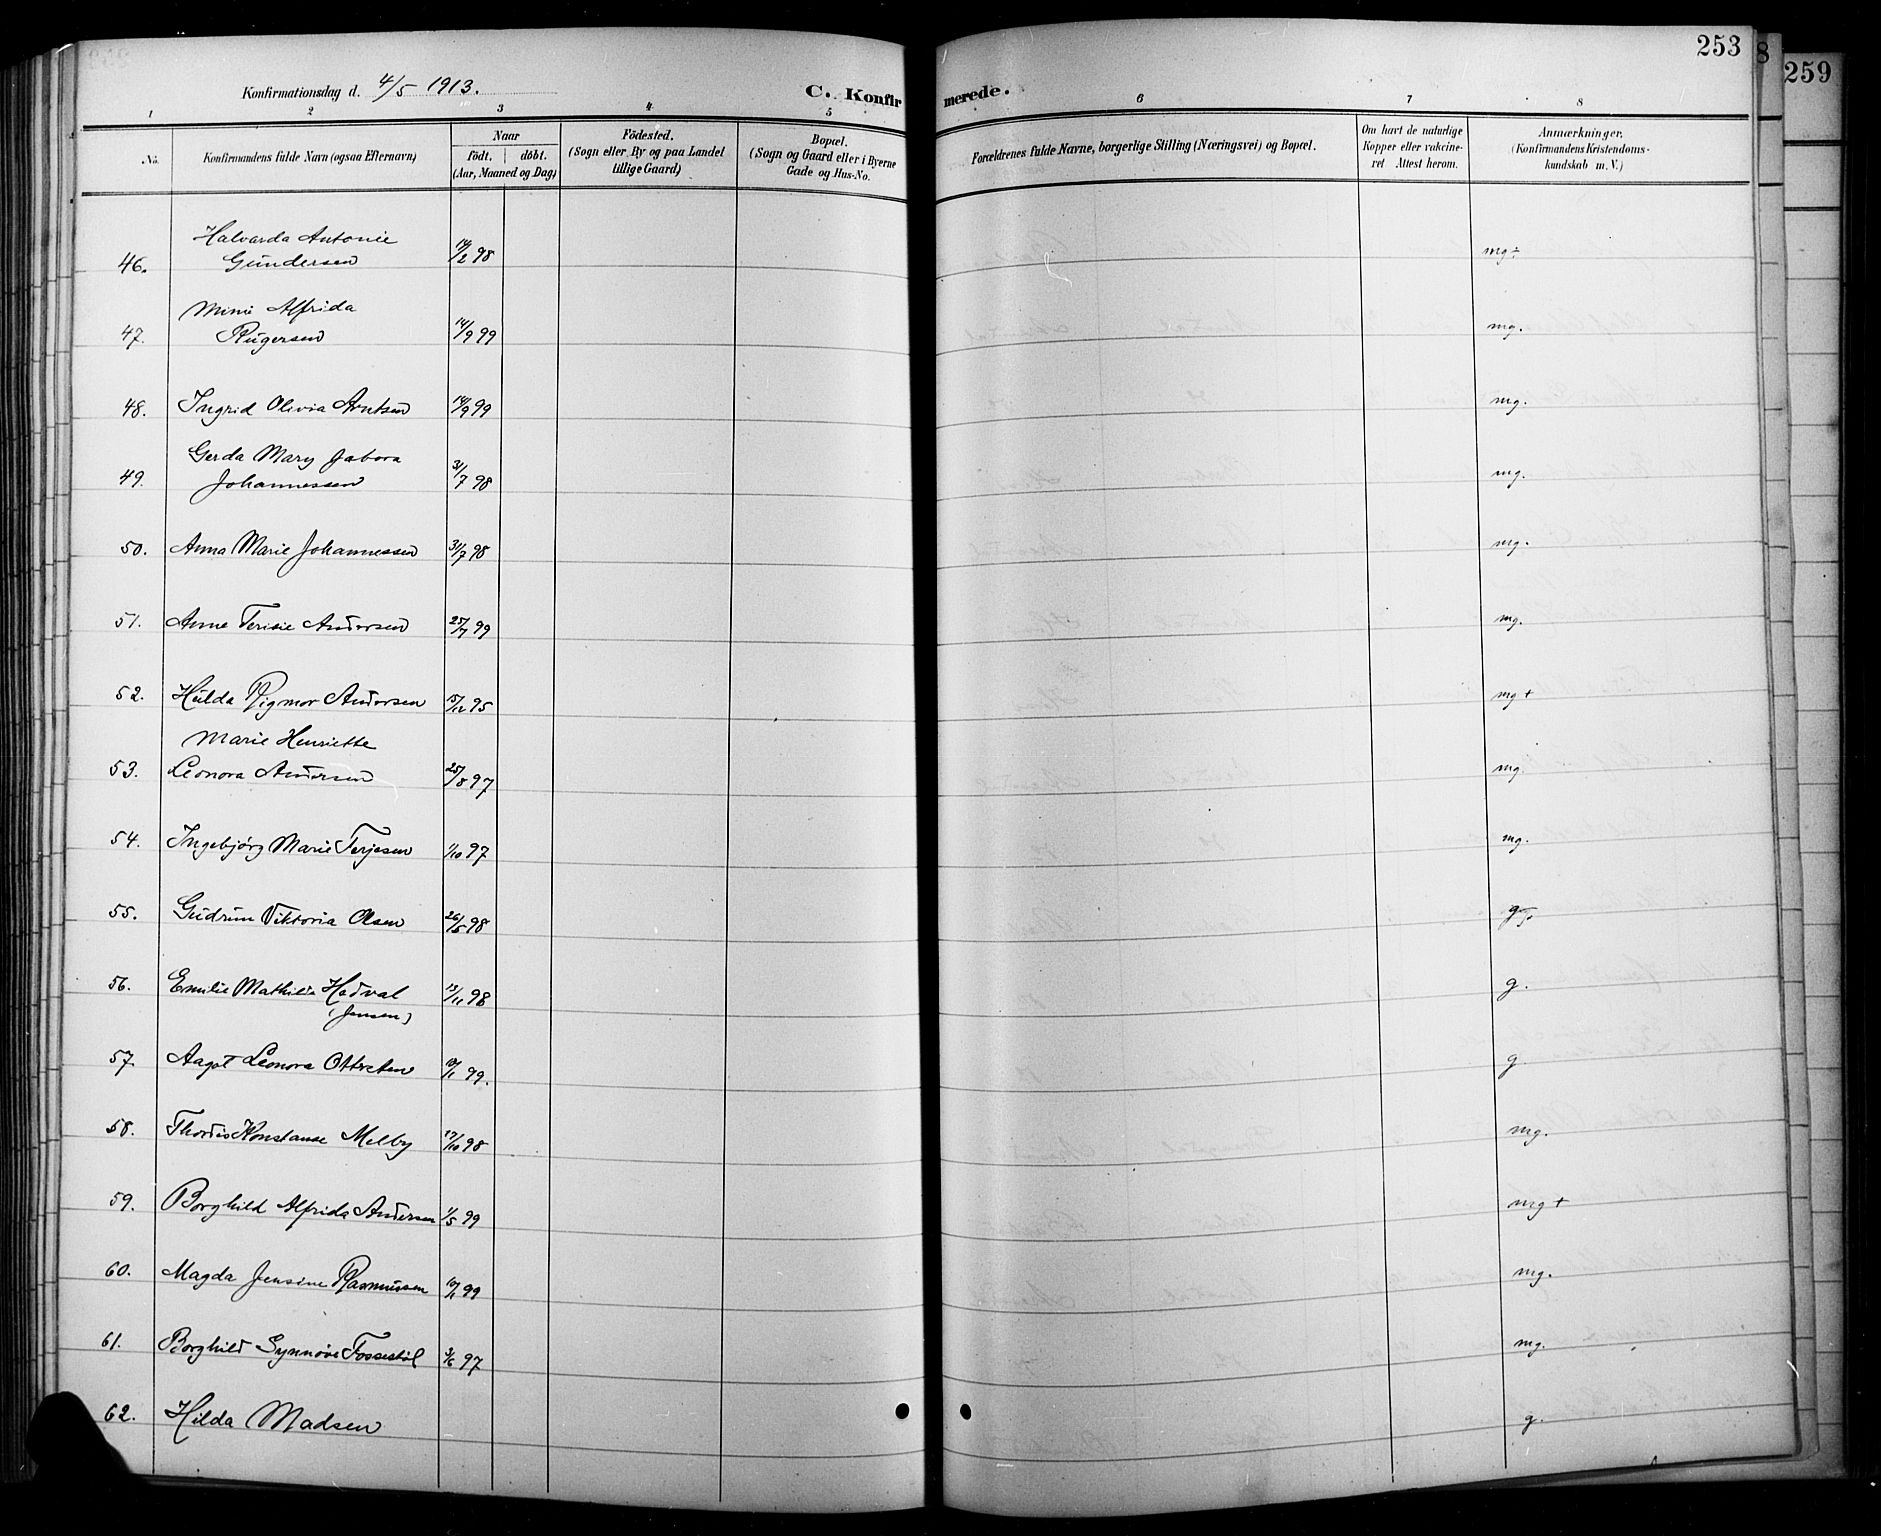 253
8
259
Konfirmationsdag d. 4/5 1913.
C. Konfirmerede.
1 2 3 4 5 6 7 8
No.
Konfirmandens fulde Navn (ogsaa Efternavn)
Naar
födt. döbt.
(Aar, Maaned og Dag)
Födested.
(Sogn eller By og paa Landet
tillige Gaard)
Bopæl.
(Sogn og Gaard eller i Byerne
Gade og Hus-No.
Forældrenes fulde Navne, borgerlige Stilling (Næringsvei) og Bopæl.
Om havt de naturlige
Kopper eller vakcine-
ret Attest herom.
Anmærkninger.
(Konfirmandens Kristendoms-
kundskab m. V.)
Halvarda Antonie
46. Gundersen 14/2 98 mg÷
Mimi Alfrida
47. Rugersen 14/9 99 mg.
48. Ingrid Olivia Arntsen 14/9 99 mg.
Gerda Mary
49. Johannessen 31/7 98 mg.
50. Anna Marie Johannessen 31/7 98 mg.
51. Anne Terisie Andersen 25/7 99 mg.
52. Hulda Rigmor Andersen 15/12 95 mg +
Marie Henriette
53. Leonora Andersen 25/8 97 mg.
54. Ingebjørg Marie Terjesen 1/10 97 mg.
55. Gudrun Viktoria Olsen 26/5 98 g
56. Emilie Mathilde Hedval 13/11 98 g.
(Jensen)
57. Aagot Leonora Ottersen 10/1 99. g.
58. Thordis Konstanse Melby 17/10 98 mg.
59. Borghild Alfrida Andersen 1/5 99 mg +
60. Magda Jensine Rasmussen 10/1 99 mg.
61. Borghild Synnøve Fossestøl 3/6 97 mg.
62. Hilda Madsen g.